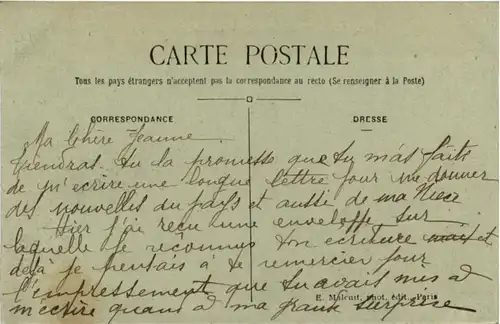 CARTE POSTALE
Tous les pays étrangers n'acceptent pas la correspondance au recto (Se renseigner à la Poste)
CORRESPONDANCE
DRESSE
Ma Chère Jeanne
tiendras tu la promesse que tu m'as faite
de m'écrire une longue lettre pour me donner
des nouvelles du pays et aussi de ma Nièce
Hier j'ai reçu une enveloppe sur
laquelle je reconnus ton écriture et
déjà je pensais à te remercier pour
l'empressement que tu avais mis à
m'écrire quand à ma grande surprise
E. Malcuit, phot. édit., Paris